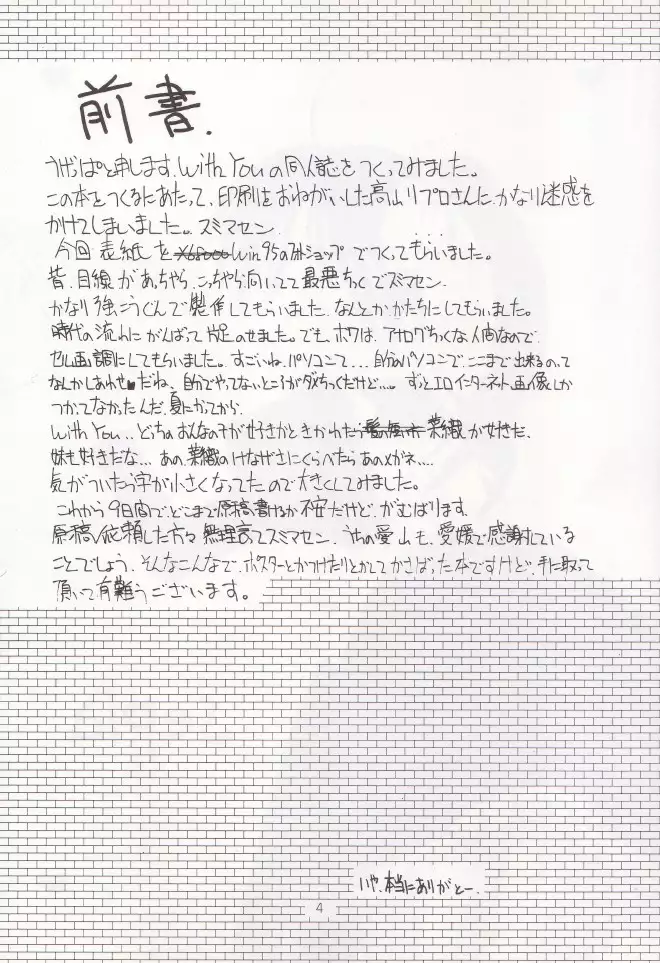 前書.
うげっぱと申します。With Youの同人誌をつくってみました。
この本をつくるにあたって、印刷をおねがいした高山リプロさんに、かなり迷惑を
かけてしまいました。スミマセン. ...
今回 表紙をX68000Win95のフォトショップでつくってもらいました。
昔、目線があっちゃら、こっちゃら向いてて最悪ちっくでスミマセン.
かなり強こうぐんで製作してもらいました。なんとかかたちにしてもらいました。
時代の流れにがんばって片足のせました。でも、ボクは、アナログちっくな人間なので、
セル画調にしてもらいました。すごいね、パソコンて...自分のパソコンで、ここまで出来るのって
なんかしあわせ♥だね、自分でやってないところがダメちっくだけど...。ずっとエロインターネット画像しか
つかってなかったんだ、夏にかってから.
With You...どっちのおんなの子が好きかときかれたら 菜織が好きだ、
妹も好きだな...あの、菜織のけなげさにくらべたらあのメガネ....
気がついたら字が小さくなってたので大きくしてみました。
これから9日間で、どこまで原稿書けるか不安だけど、がむばります.
原稿依頼した方々無理言ってスミマセン. うちの愛山も、愛媛で感謝している
ことでしょう. そんなこんなで、ポスターとかつけたりとかしてかさばった本ですけど、手に取って
頂いて有難うございます。
いや、本当にありがとー.
4